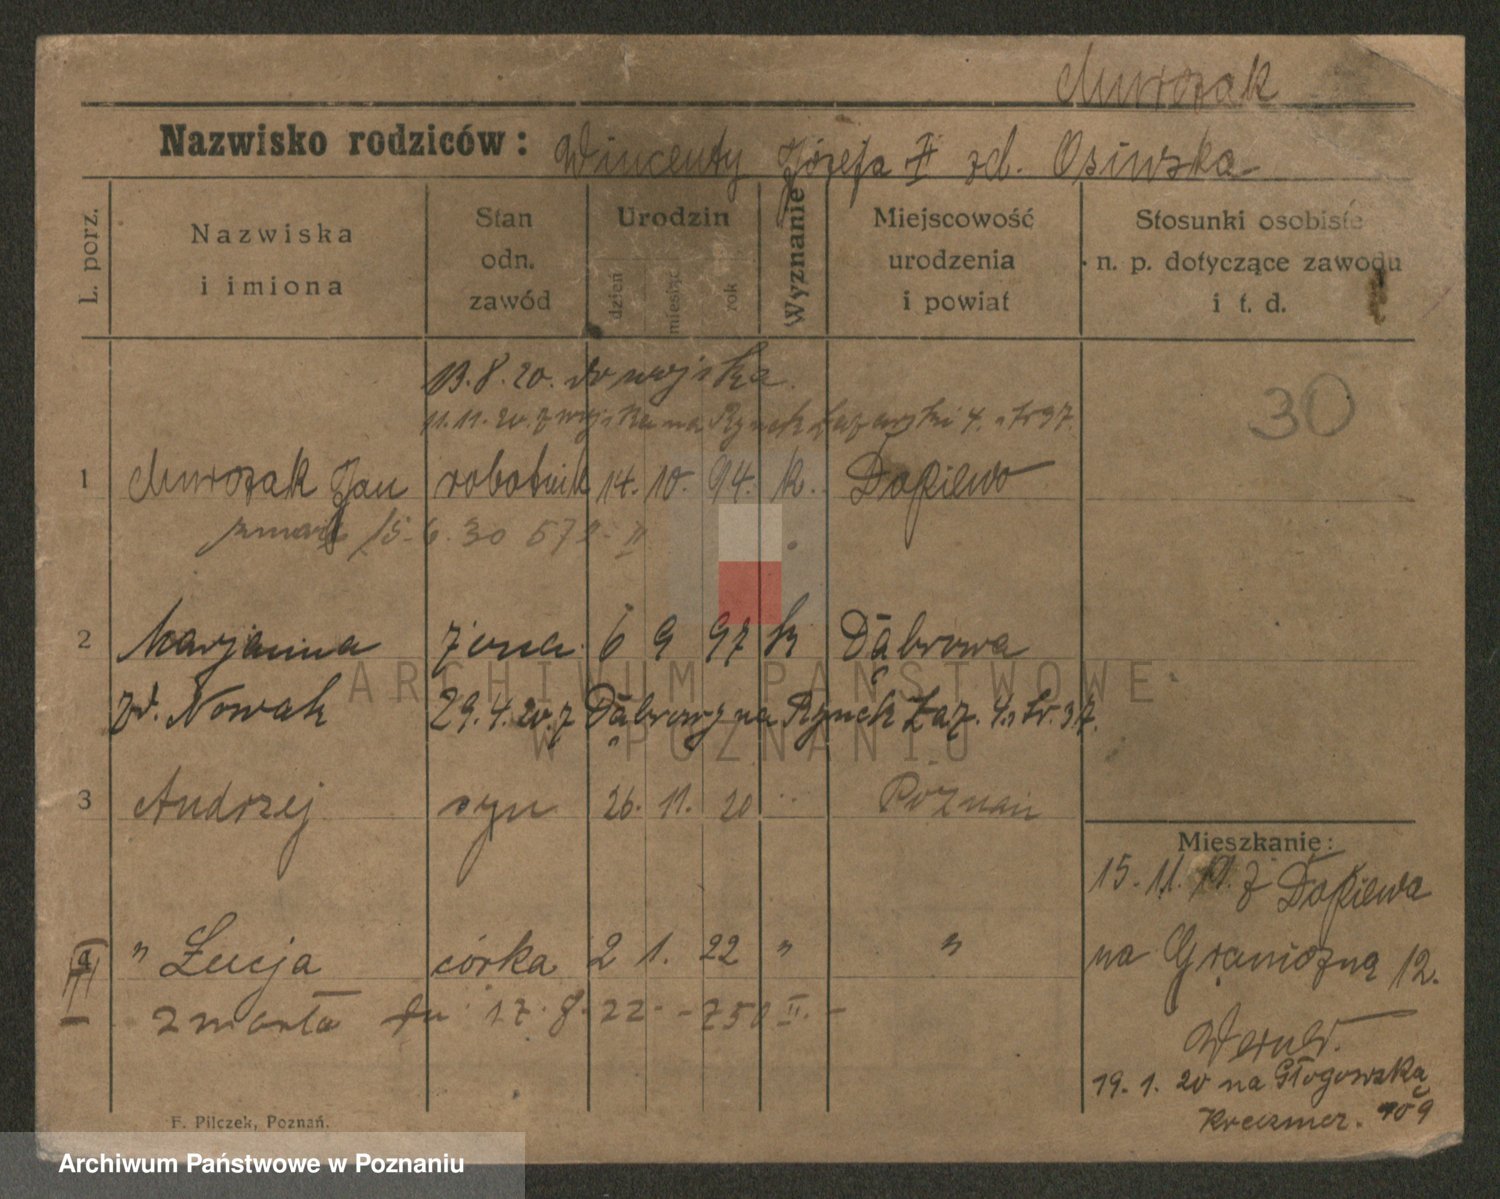 Murozak
Nazwisko rodziców: Wincenty Józefa zd. Osiwska
L. porz.
Nazwiska i imiona
Stan odn. zawód
Urodzin
dzień
miesiąc
rok
Wyznanie
Miejscowość urodzenia i powiat
Stosunki osobiste n. p. dotyczące zawodu i t. d.
13.8.20. do wojska.
11.11.20. z wojska na Rynek Łazarski 4. tr 37.
30
1 Murozak Jan robotnik 14. 10. 94. k. Dopiewo
zmarł 15.6.30 572 - II
2 Marjanna żona 6 9 97 k Dąbrowa
zd. Nowak 29.4.20. z Dąbrowy na Rynek Łaz. 4. tr. 37.
3 Andrzej syn 26. 11. 20 Poznań
4 " Łucja córka 2 1. 22 " "
zmarła dn 17.8.22 - 750 II. -
Mieszkanie:
15.11.19. z Dopiewa
na Graniczną 12.
19.1.20 na Głogowską
109
F. Pilczek, Poznań.
ARCHIWUM PAŃSTWOWE
W POZNANIU
Archiwum Państwowe w Poznaniu